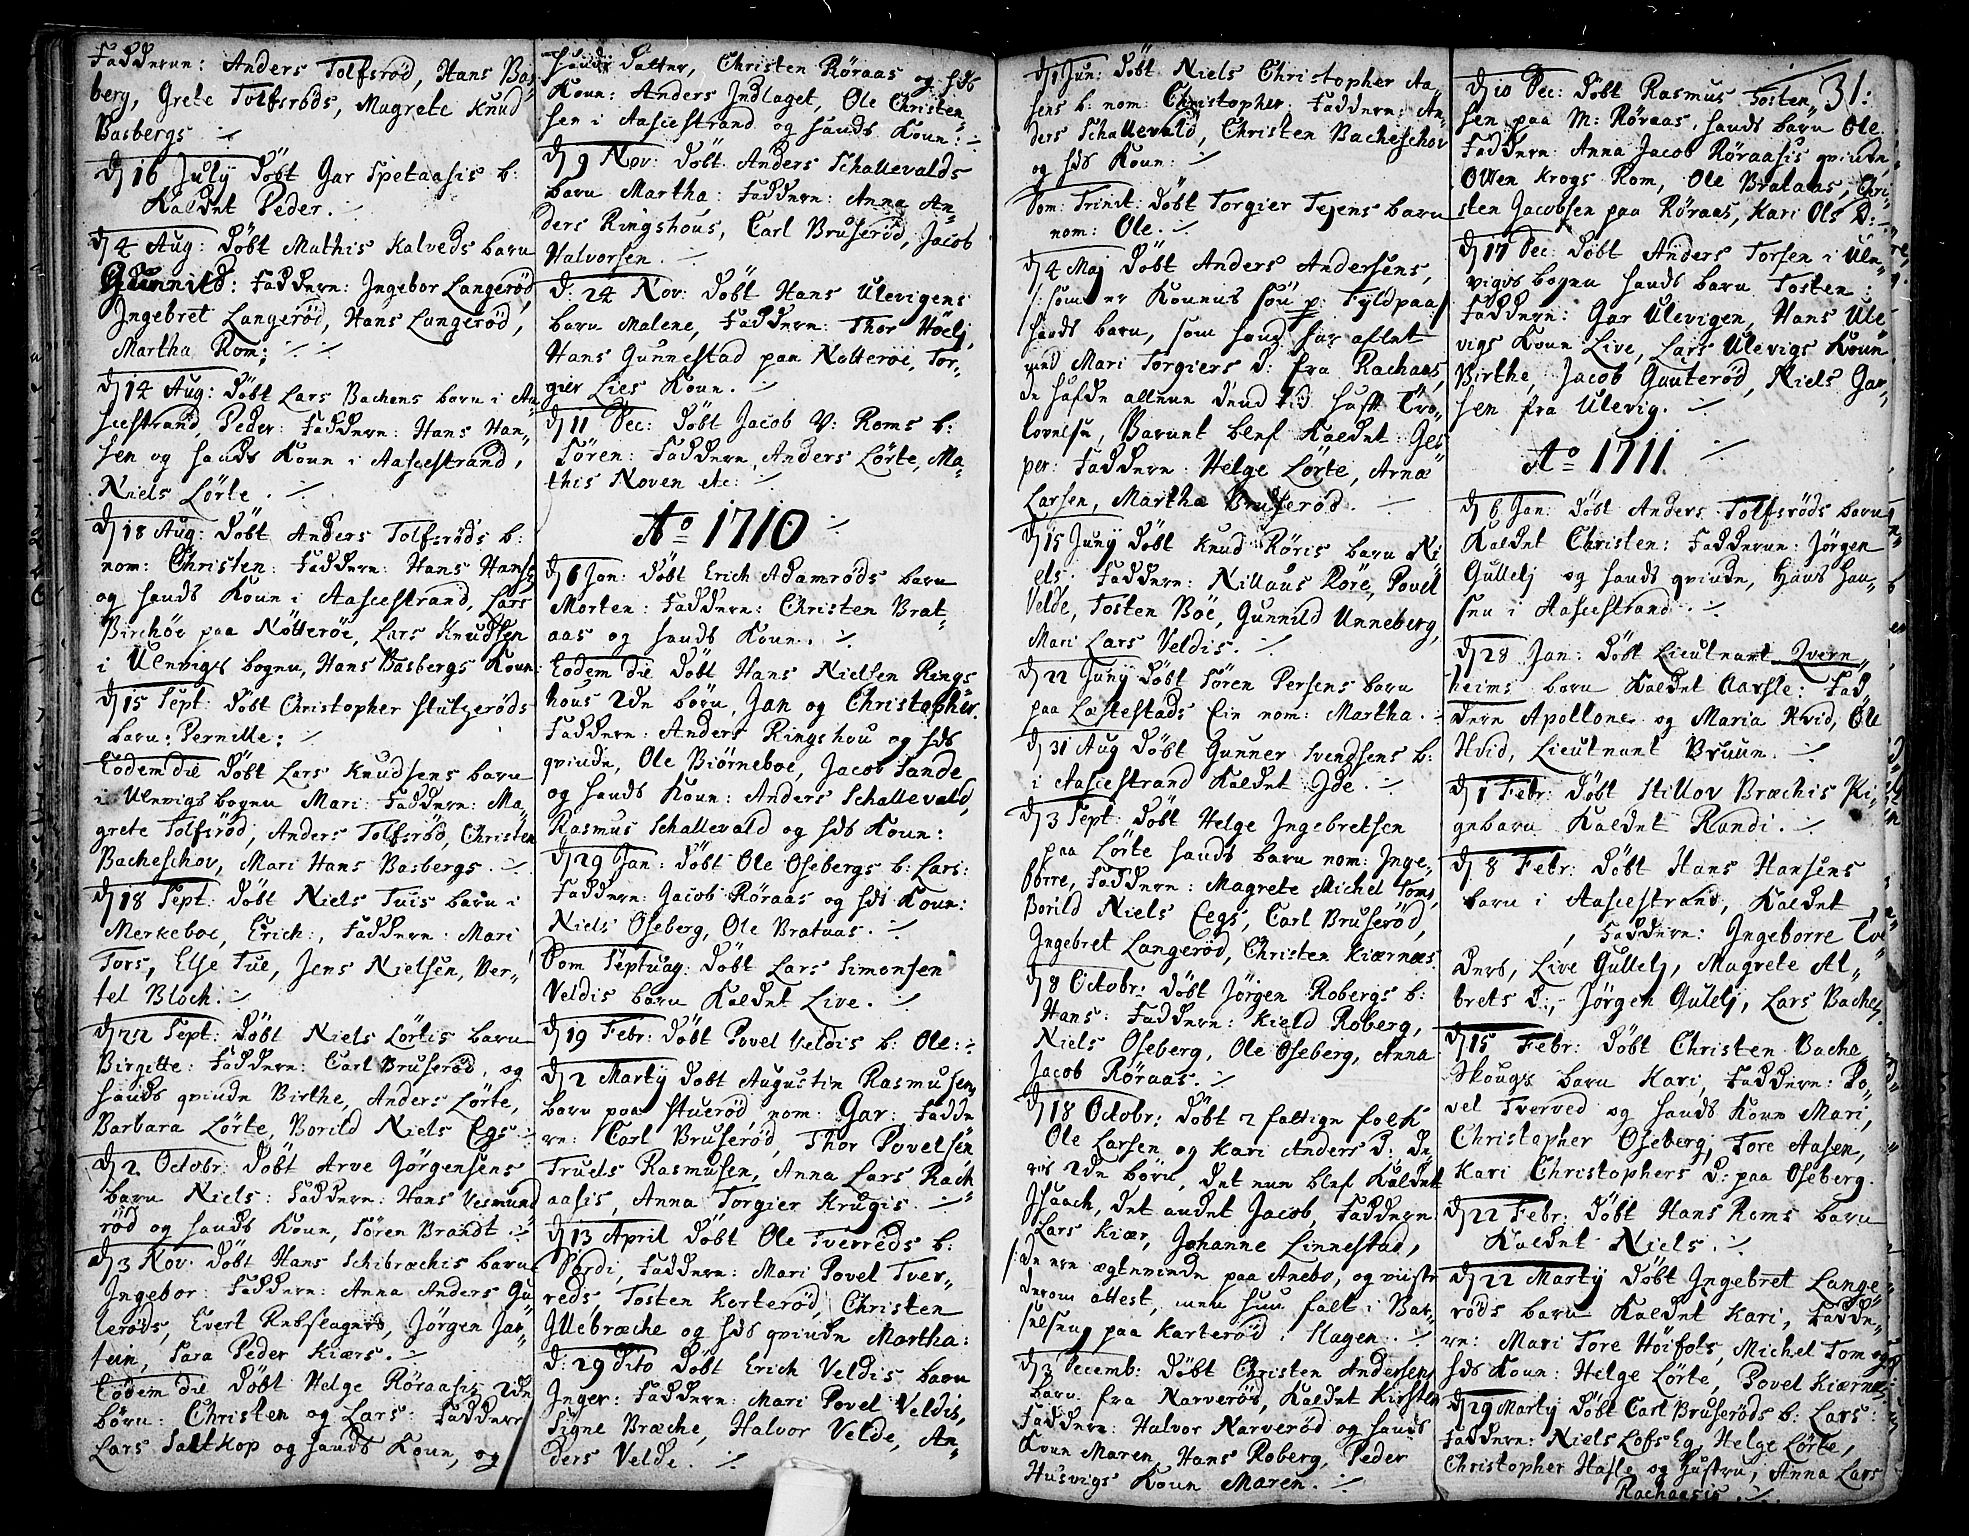 Fadderne: Anders Tolfsrød, Hans Bas
berg, Grete Tolfsrøds, Magrete Knud
Basbergs ./.
D 16 July Døbt Gar Spetaasis b:
Kaldet Peder. ./.
D 4 Aug: Døbt Mathis Kalveds barn
Gunnild: Faddern: Ingebor Langerød,
Ingebret Langerød, Hans Langerød,
Martha Rom; ./. ./.
D 14 Aug: Døbt Lars Bachens barn i Aa
scestrand Peder: Faddern: Hans Han„
sen og hands Kone i Aascestrand,
Niels Lörte. ./.
D 18 Aug: Døbt Anders Tolfsrøds b:
nom: Christen: Faddern: Hans Hans„
og hands Kone i Aascestrand, Lars
Birchöe paa Nötteröe, Lars Knudsen
i Ulevigs bogen, Hans Basbergs Kone
D 15 Sept: Døbt Christopher Stutzerøds
barn: Pernille: ./.
Eodem die Døbt Lars Knudsens barn
i Ulevigs bogen Mari: Faddern: Ma„
grete Tolfsrød, Anders Tolfsrød, Christen
Bacheschov, Mari Hans Basbergs. ./.
D 18 Sept: Døbt Niels Tuis barn i
Merkeboe, Erich:, Faddern: Mari
Tors, Else Tue, Jens Nielsen, Ber„
tel Bloch. ./.
D 22 Sept: Døbt Niels Lörtis barn
Birgitte: Faddern: Carl Bruserød, og
hands qvinde Birthe, Anders Lörte,
Barbara Lörte, Borild Niels Egs ./.
D 2 Octobr: Døbt Arve Jörgensens
barn Niels: Faddern: Hans Vesmund
rød og hands Kone, Sören Brandt ./.
D 3 Nov: Døbt Hans Schibrechis barn
Ingebor: Faddern: Anna Anders Gu
lerøds, Evert Rebslagers, Jörgen Jar„
tein, Sara Peder Kiærs. ./.
Eodem die Døbt Helge Röraasis 2de
børn: Christen og Lars: Faddern
Lars Saltkop og hands Kone, og
hands Datter, Christen Röraas og hds
Kone: Anders Indlaget, Ole Christen„
sen i Aascestrand og hands Kone: ./.
D 9 Nov: Døbt Anders Schallevalds
barn Martha: Faddern: Anna An„
ders Ringshous, Carl Bruserød, Jacob
Halvorsen. ./.
D: 24 Nov: Døbt Hans Ulevigens
barn Malene, Faddern: Thor Höelj,
Hans Gunnestad paa Nötteröe, Tor„
gier Lies Kone. ./.
D 11 Dec: Døbt Jacob V: Roms b:
Sören: Faddern, Anders Lörte, Ma„
this Noven etc: ./.
Ao 1710 ./.
D 6 Jan: Døbt Erich Adamrøds barn
Morten: Faddern: Christen Brat„
aas og hands Kone. ./.
Eodem die Døbt Hans Nielsen Rings
hous 2de børn, Jan og Christopher.
Faddern: Anders Ringshou og hds
qvinde, Ole Biörneboe, Jacob Sande
og hands Kone: Anders Schallevald,
Rasmus Schallevald og hds Kone:
D 29 Jan: Døbt Ole Osebergs b: Lars:
Faddern: Jacob Röraas og hds Kone:
Niels Oseberg, Ole Brataas. ./.
Dom Septuag: Døbt Lars Simonsen
Veldis barn Kaldet Live. ./.
D 19 Febr: Døbt Povel Veldis b: Ole: ./.
D 2 Martij Døbt Augustin Rasmusens
barn paa Stuerød nom: Gar: Fadde
re: Carl Bruserød, Thor Povelsen
Truels Rasmusen, Anna Lars Rach
aasis, Anna Torgier Krugis. ./.
D 13 April Døbt Ole Tverreds b:
Sördi, Faddern: Mari Povel Tver„
reds, Tosten Korterød, Christen
Illebræche og hds qvinde Martha:
D: 29 Dito Døbt Erich Veldis barn
Inger: Faddern: Mari Povel Veldis,
Signe Bræche, Halvor Velde, An„
ders Velde. ./.
D 1 Jun: Døbt Niels Christopher Aa„
sens b: nom: Christopher: Faddern: An„
ders Schallevald, Christen Bacheschov
og hds Kone: ./.
Dom: Trinit: Døbt Torgier Tejens barn
nom: Ole. ./.
D 4 Maj Døbt Anders Andersens,
/: som er Konens sön p: Fyldpaa :/
hands barn, som hand har aflet
med Mari Torgiers D: fra Rachaas,
de hafde allene dend tid haft Tro„
lovelse, Barnet blef Kaldet Jes
per: Faddern: Helge Lörte, Arne
Larsen, Martha Bruserød. ./.
D 15 Junij Døbt Knud Röris barn Ni
els: Faddern: Nillaus Röre, Povel
Velde, Tosten Böe, Gunnild Unneberg,
Mari Lars Veldis. ./.
D 22 Junij Døbt Sören Persens barn
paa Lastestads Eie nom: Martha. ./.
D 31 Aug Døbt Gunner Svendsens b:
i Aascestrand Kaldet Ide. ./.
D 3 Sept: Døbt Helge Ingebretsen
paa Lörte hands barn nom: Inge„
borre, Faddern: Magrete Michel Toms,
Borild Niels Eegs, Carl Bruserød,
Ingebret Langerød, Christen Kiærnæs.
D 8 Octobr: Døbt Jörgen Robergs b:
Hans: Faddern: Kield Roberg,
Niels Oseberg, Ole Oseberg, Anna
Jacob Röraas. ./.
D 18 Octobr: Døbt 2 fattige folk
Ole Larsen og Kari Anders D: De„
ris 2de børn, det ene blef Kaldet
Isaach, det andet Jacob, Faddern
Lars Kiær, Johanne Linnestad,
/: De ere ægteviede paa Anebo, og viiste
derom attest, men hun falt i Bar„
selseng paa Karterød i Slagen. ./.
D 3 Decemb: Døbt Christen Andersens
barn fra Narverød, Kaldet Kirsten
Faddern: Halvor Narverød og hands
Kone Maren, Hans Roberg, Peder
Husvigs Kone Maren. ./.
31:
D 10 Dec: Døbt Rasmus Tosten„
sen paa M: Röraas, hands barn Ole
Faddern: Anna Jacob Röraasis qvinde
Olten Krogs Rom, Ole Brataas, Chri„
sten Jacobsen paa Röraas, Kari Ols D: ./.
D 17 Dec: Døbt Anders Torsen i Ule„
vigs bogen hands barn Tosten:
Faddern: Gar Ulevigen, Hans Ule
vigs Kone Live, Lars Ulevigs Kone
Birthe, Jacob Gunterød, Niels Gar„
sen fra Ulevig. ./.
Ao 1711. ./.
D 6 Jan: Døbt Anders Tolfsrøds barn
Kaldet Christen: Fadderne: Jörgen
Gullelj og hands qvinde, Hans Han„
sen i Aascestrand. ./.
D 28 Jan: Døbt Lieutnant Qvern„
heims barn Kaldet Aarsle: Fad„
dern Apollone og Maria Hvid, Ole
Hvid, Lieutnant Bruun. ./.
D 1 Febr: Døbt Stillov Bræchis Pi„
gebarn Kaldet Randi. ./.
D 8 Febr: Døbt Hans Hansens
barn i Aascestrand, Kaldet
, Faddern: Ingeborre Tol
ders, Live Gullelj, Magrete Al„
brets D:, Jörgen Gulelj, Lars Bachen.
D 15 Febr: Døbt Christen Bache
Skougs barn Kari, Faddern: Po„
vel Tverved og hands Kone Mari,
Christopher Oseberg, Tore Aasen,
Kari Christophers D: paa Oseberg.
D 22 Febr: Døbt Hans Roms barn
Kaldet Niels. ./.
D 22 Martij Døbt Ingebret Lange„
røds barn Kaldet Kari, Fadde„
re: Mari Tore Höifots, Michel Tom og
hds Kone: Helge Lörte, Povel Kiærnes:
D 29 Martij Døbt Carl Bruserøds b: Lars:
Faddern: Niels Lofs Eg, Helge Lörte,
Christopher Hasle og Hustru, Anna Lars
Rachaasis. ./.